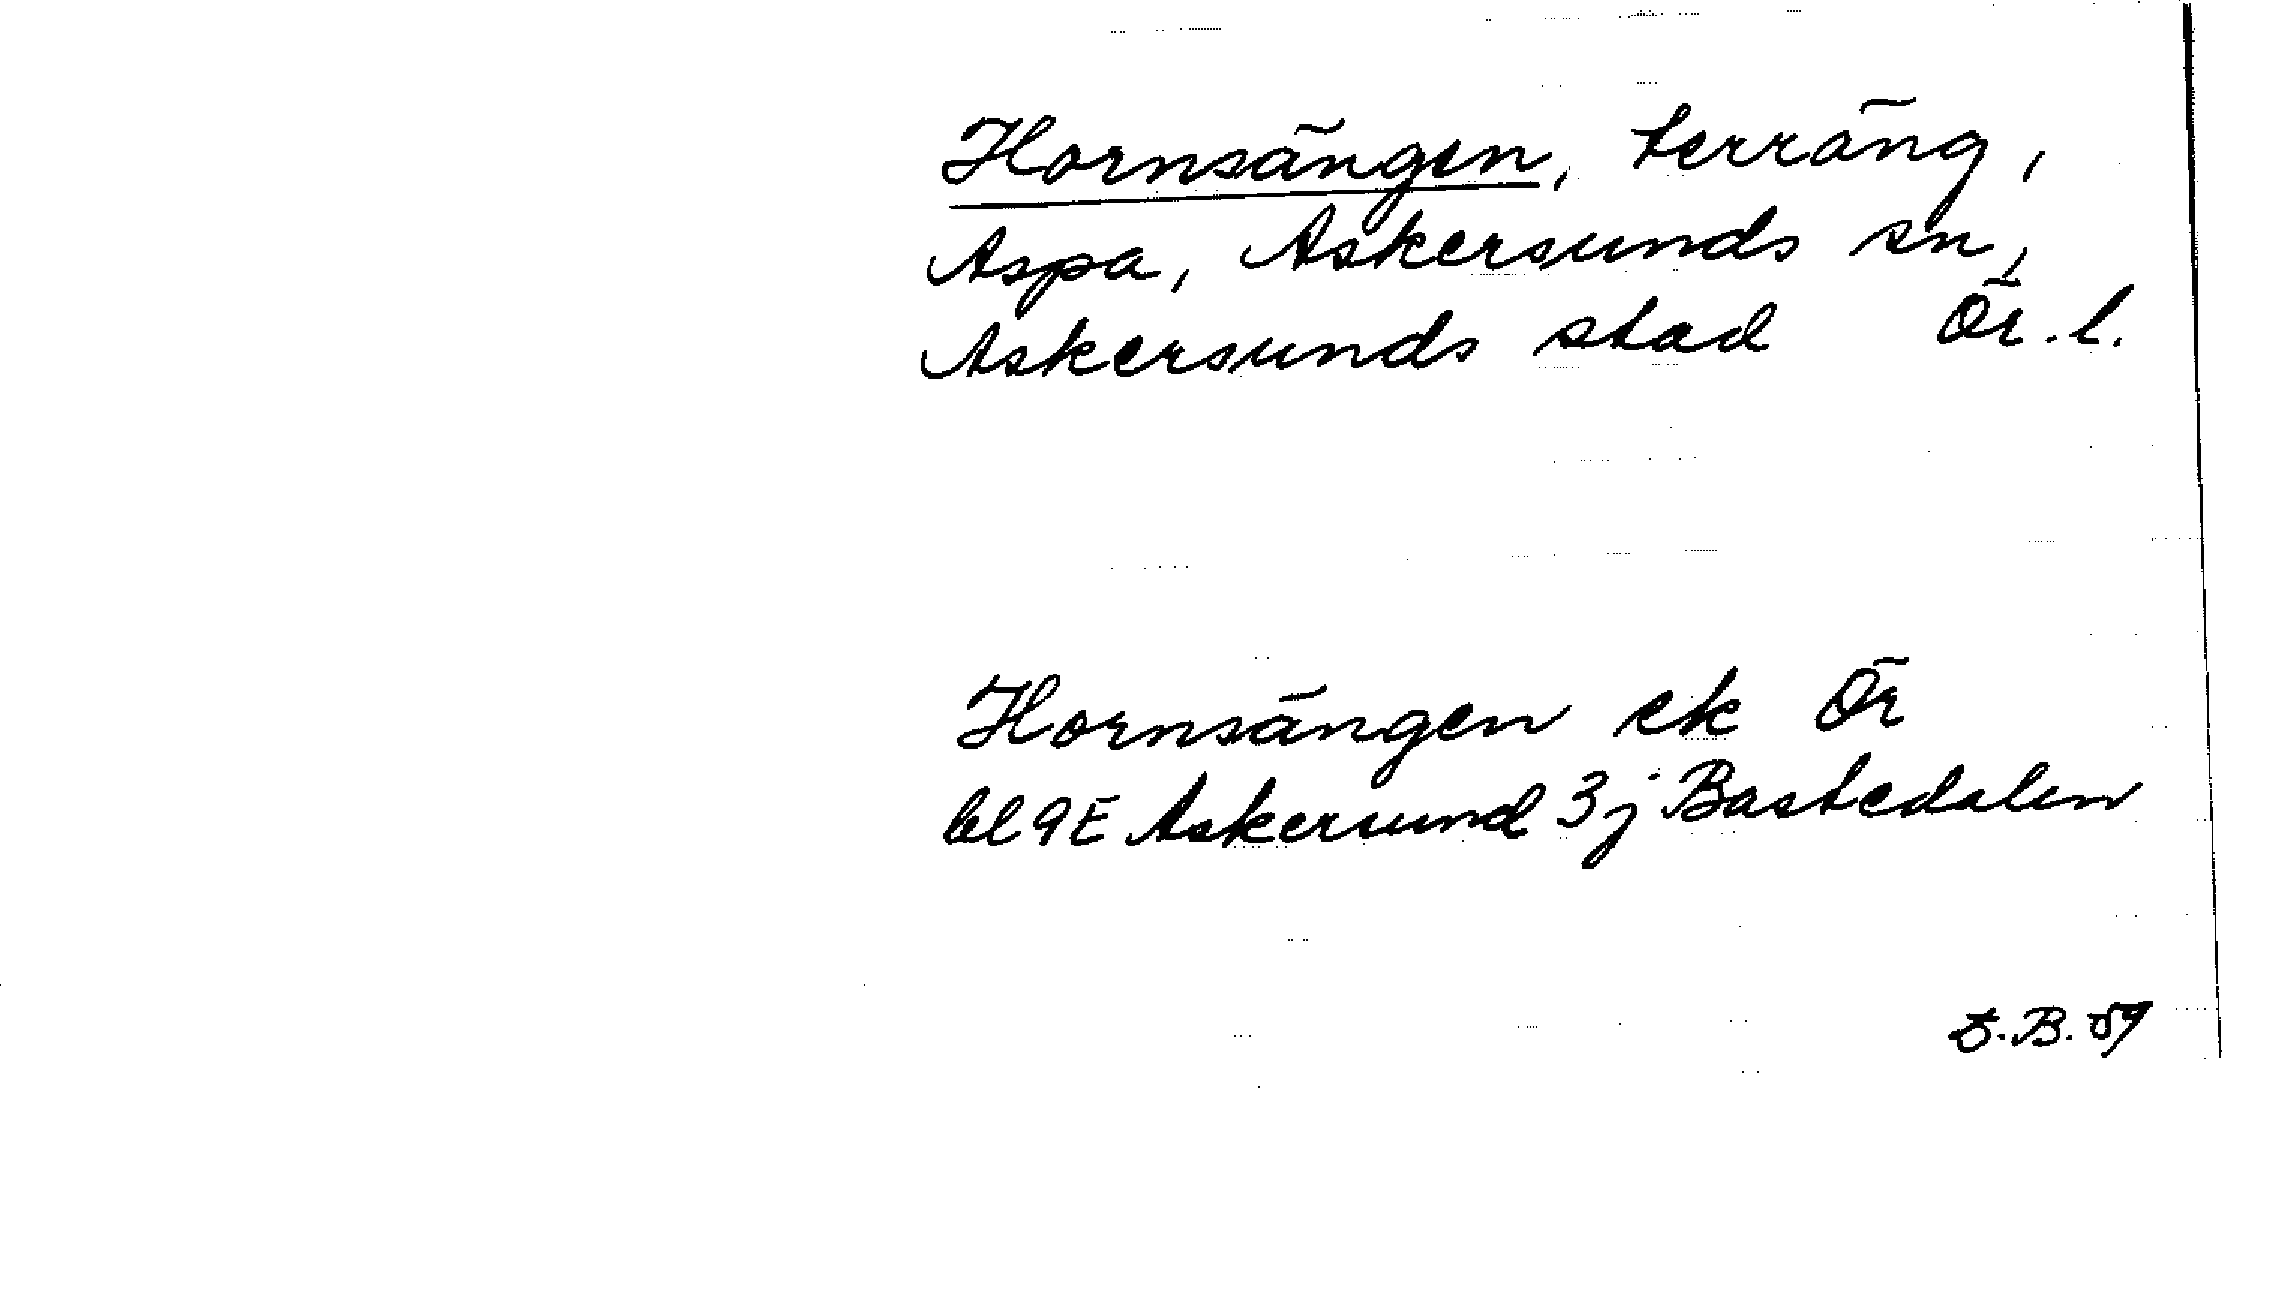 Hornsängen, terräng,
Aspa, Askersunds sn,
Askersunds stad Ör. l.
Hornsängen ek Ör
bl 9E Askersund 3j Bastedalen
B. 59